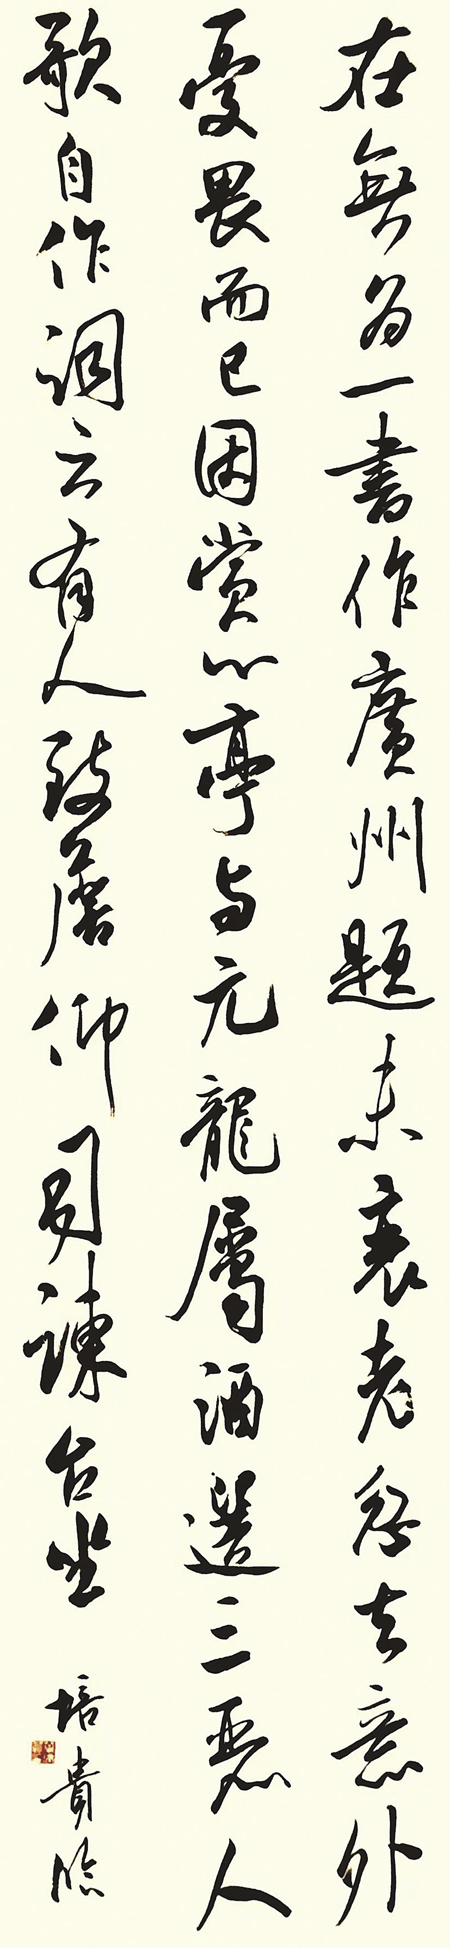 在無为一書作廣州題未衰老忽去意外
憂畏而已因賞心亭与元龍屬酒選三惡人
歌自作詞云有人致詹仰司諫台坐
培貴臨